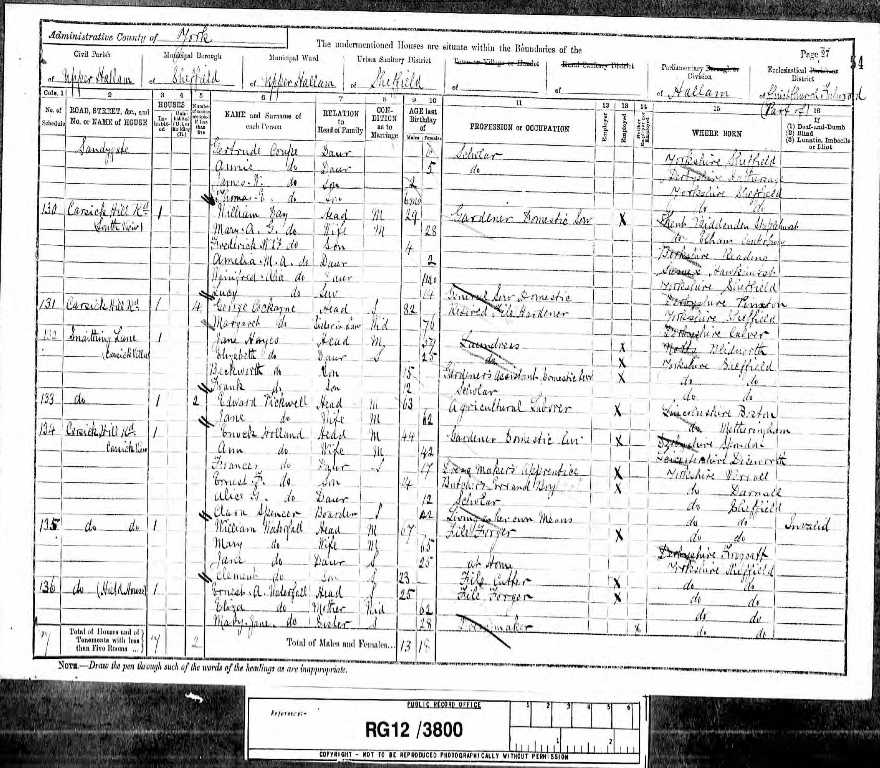 Administrative County of York
The undermentioned Houses are situate within the Boundaries of the
Page 27
54
Civil Parish
of Upper Hallam
Municipal Borough
of Sheffield
Municipal Ward
of Upper Hallam
Urban Sanitary District
of Sheffield
Town or Village or Hamlet
of
Rural Sanitary District
of
Parliamentary Borough or Division
of Hallam
Ecclesiastical Parish or District
of Christ Church Fulwood
(Part of)
Cols. 1 2 3 4 5 6 7 8 9 10 11 12 13 14 15 16
No. of Schedule
ROAD, STREET, &c., and No. or NAME of HOUSE
HOUSES
NAME and Surname of each Person
RELATION to Head of Family
CONDITION as to Marriage
AGE last Birthday of
Males Females
PROFESSION or OCCUPATION
Employer
Employed
WHERE BORN
If
(1) Deaf-and-Dumb
(2) Blind
(3) Lunatic, Imbecile or Idiot
Sandygate Gertrude Daur Scholar Yorkshire Sheffield
Annie do Daur 5 do
James do Son 2 Yorkshire Sheffield
Thomas do Son do do
130 Carsick Hill Rd 1 William Head M 29 Gardener Domestic Serv X Kent
(South View) Mary A. G. do Wife M 28 do
Frederick do Son 4 Reading
Amelia M. A. do Daur 2 Sussex Hawkhurst
Winifred do Daur Yorkshire Sheffield
Lucy do General Serv Domestic Derbyshire
131 Carsick Hill Rd 1 4 George Cockayne Head S 82 Retired Gardener Yorkshire Sheffield
Margaret do Wid 76 Derbyshire Calver
132 Snaithing Lane 1 Jane Hayes Head M Laundress X Notts Blidworth
Elizabeth do Daur S 25 do X Yorkshire Sheffield
Beckworth do Son 15 Gardener's assistant Domestic Serv X do do
Frank do Son 12 Scholar do do
133 do 1 2 Edward Head M 63 Agricultural Labourer X Lincolnshire
Jane do Wife M 62 do Metheringham
134 Carsick Hill Rd 1 Enoch Holland Head M 44 Gardener Domestic Serv X
Carsick View Ann do Wife M 42 Leicestershire Diseworth
Frances do Daur S 17 Dress maker's apprentice X Yorkshire
Ernest F. do Son 14 Butcher's Errand Boy X do Darnall
Alice G. do Daur 12 Scholar do Sheffield
Clara Spencer Boarder S 22 Living on her own Means do do Invalid
135 do do 1 William Waterfall Head M 67 File Forger X do do
Mary do Wife M 65 Derbyshire
Jane do Daur S 25 at Home Yorkshire Sheffield
Clement do Son S 23 File Cutter X do do
136 do (Hill House) 1 Ernest A. Waterfall Head S 25 File Forger X do do
Eliza do Mother Wid 62 do do
Mary Jane do Sister S 28 X do do
7 Total of Houses and of Tenements with less than Five Rooms 7 2 Total of Males and Females... 13 18
NOTE.—Draw the pen through such of the words of the headings as are inappropriate.
PUBLIC RECORD OFFICE
Reference:-
1 2 3 4 5 6
RG12/3800
1 2
COPYRIGHT - NOT TO BE REPRODUCED PHOTOGRAPHICALLY WITHOUT PERMISSION